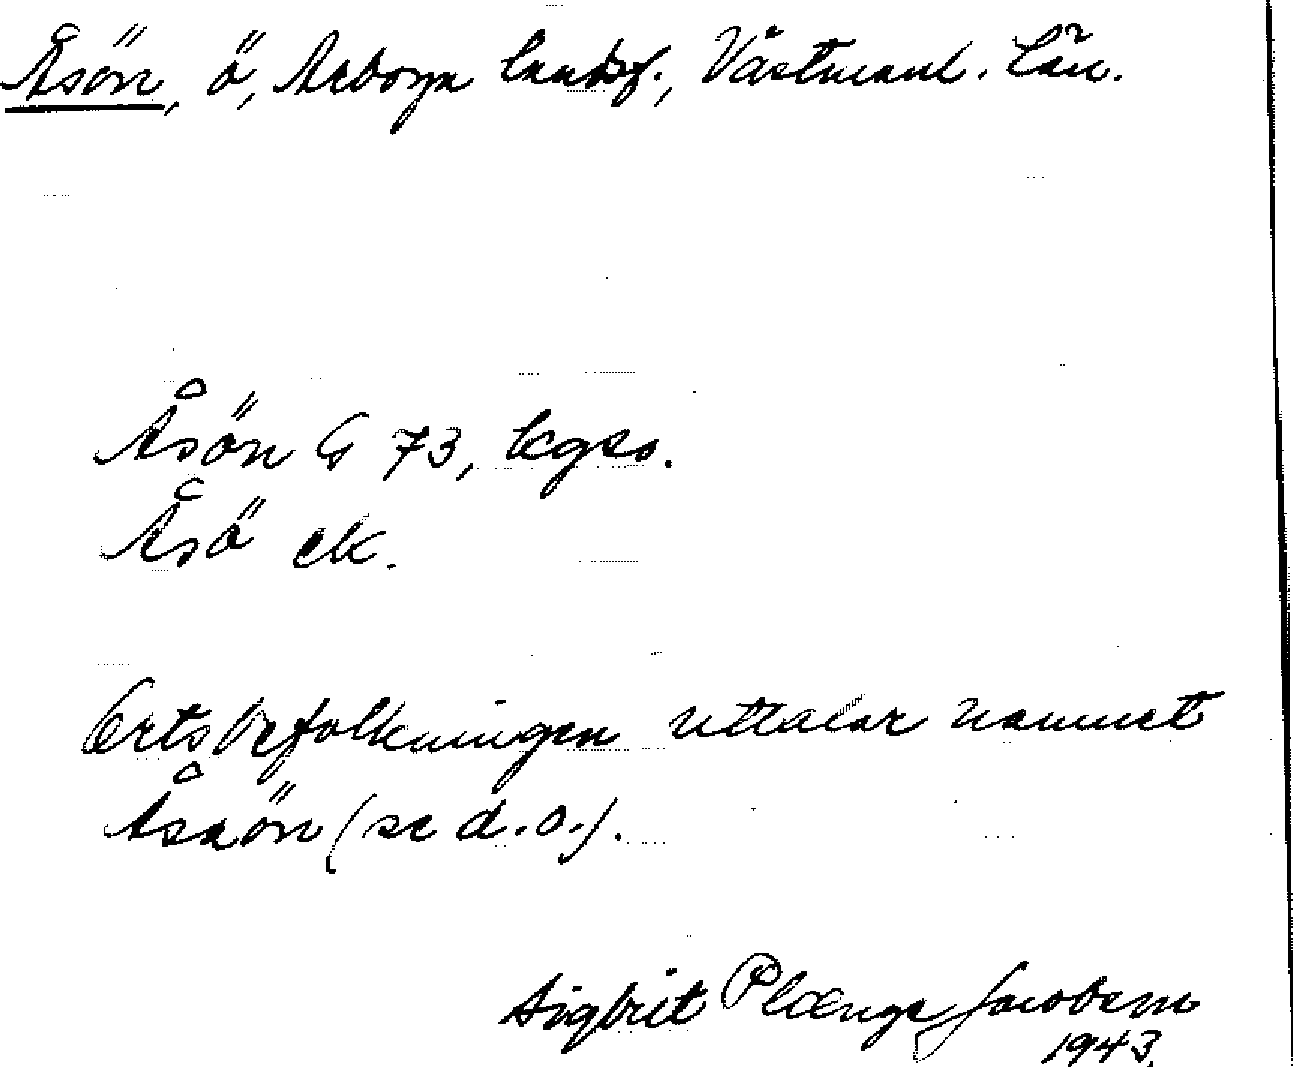 Åsön, ö, Arboga landsf., Västmanl. län.
Åsön G 73, kgso.
Åsö ek.
Ortsbefolkningen uttalar namnet
Åsaön (se d.o.).
Sigbrit Plænge Jacobson
1943.